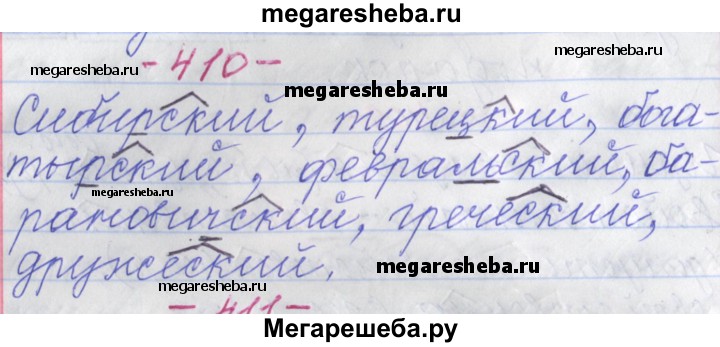 megaresheba.ru
- 410 -
megaresheba.ru
megaresheba.ru
megaresheba.ru
Сибирский, турецкий, бога-
тырский, февральский, ба-
megaresheba.ru
рановичский, греческий,
дружеский.
megaresheba.ru
- 411 -
Мегарешеба.ру